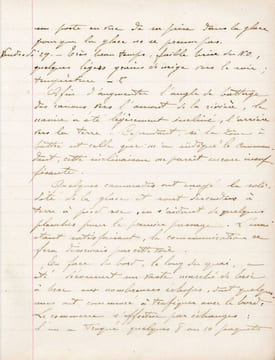 un poste en vue de se pièce dans la glace
pour que la glace ne se prenne pas.
Vendredi 29 - Très beau temps, faible brise de NO,
quelques légers grains de neige vers le soir,
température - 8
Afin d'augmenter l'angle de battage
des canons vers l'amont de la rivière, le
navire a été légèrement incliné, l'arrière
vers la terre. Cependant si la zone à
battre est celle que m'a indiqué le Comman-
dant, cette inclinaison me paraît encore insuf-
fisante.
Quelques camarades ont essayé la soli-
dité de la glace et sont descendus à
terre à pied sec, en s'aidant de quelques
planches pour le premier passage.
étant satisfaisant, la communication se
fera désormais par cette voie.
En face du bord, le long du quai,
été découvert un vaste marché de bric
à brac aux nombreuses échoppes, dont quelques
unes ont commencé à trafiquer avec le bord.
Le commerce s'effectue par échanges :
l'un a troqué quelques 8 ou 10 paquets